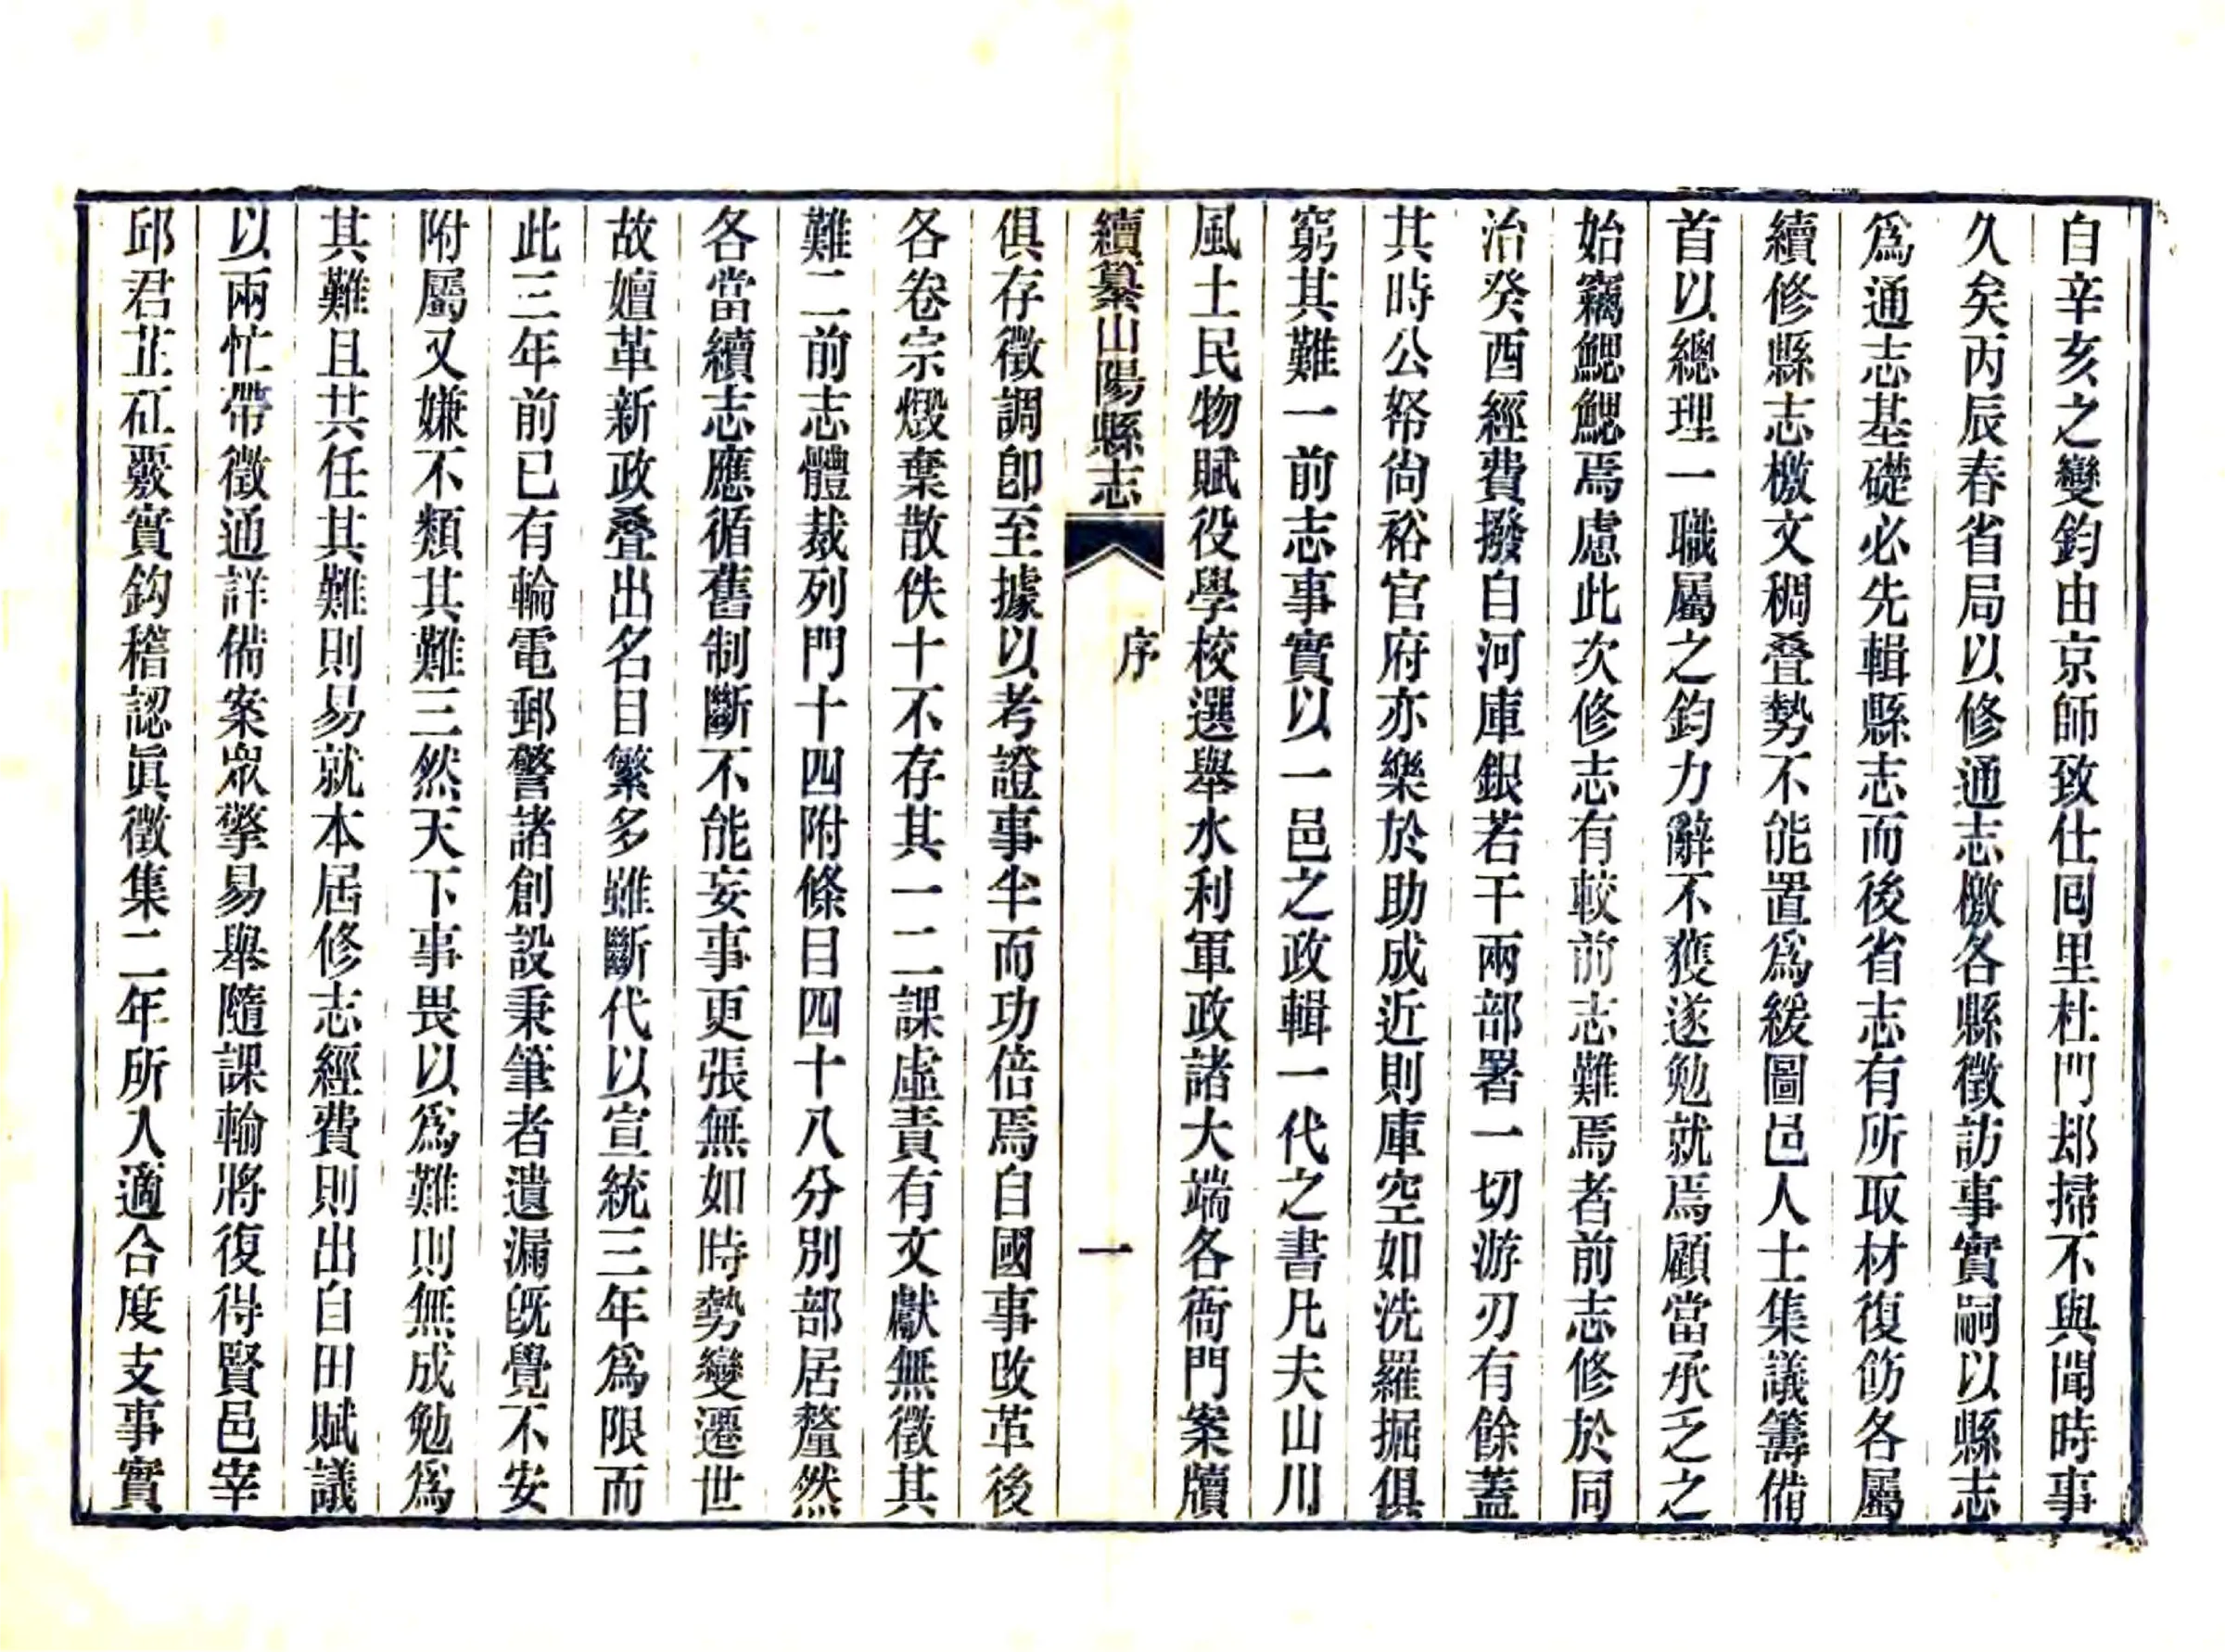 自辛亥之變鈞由京師致仕囘里杜門却掃不與聞時事
久矣丙辰春省局以修通志檄各縣徵訪事實嗣以縣志
爲通志基礎必先輯縣志而後省志有所取材復飭各屬
續修縣志檄文稠叠勢不能置爲緩圖邑人士集議籌備
首以總理一職屬之鈞力辭不獲遂勉就焉顧當承乏之
始竊鰓鰓焉慮此次修志有較前志難焉者前志修於同
治癸酉經費撥自河庫銀若干兩部署一切游刃有餘蓋
其時公帑尙裕官府亦樂於助成近則庫空如洗羅掘俱
窮其難一前志事實以一邑之政輯一代之書凡夫山川
風土民物賦役學校選舉水利軍政諸大端各衙門案牘
續纂山陽縣志 序 一
俱存徵調卽至據以考證事半而功倍焉自國事改革後
各卷宗燬棄散佚十不存其一二課虛責有文獻無徵其
難二前志體裁列門十四附條目四十八分別部居釐然
各當續志應循舊制斷不能妄事更張無如時勢變遷世
故嬗革新政叠出名目繁多雖斷代以宣統三年爲限而
此三年前已有輪電郵警諸創設秉筆者遺漏旣覺不安
附屬又嫌不類其難三然天下事畏以爲難則無成勉爲
其難且共任其難則易就本居修志經費則出自田賦議
以兩忙帶徵通詳備案眾擎易舉隨課輸將復得賢邑宰
邱君芷𥐻覈實鈎稽認眞徵集二年所入適合度支事實